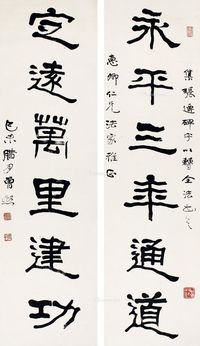 集張遷碑字以賛全法也
永平三年通道
惠卿仁兄法家雅正
定遠萬里建功
曾熙